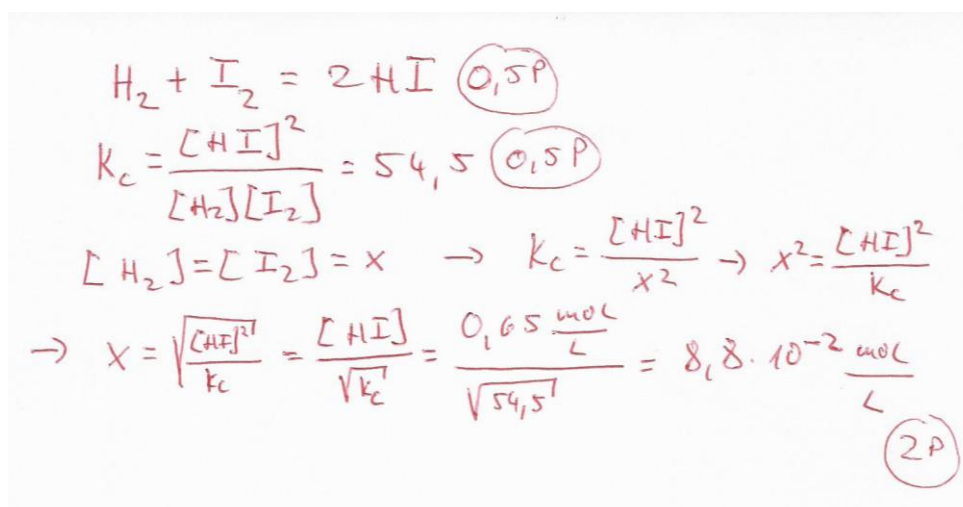 H₂ + I₂ = 2 HI 0,5P
Kc = [HI]² / [H₂][I₂] = 54,5 0,5P
[H₂] = [I₂] = x → Kc = [HI]² / x² → x² = [HI]² / Kc
→ x = √([HI]² / Kc) = [HI] / √Kc = 0,65 mol/L / √54,5 = 8,8 · 10⁻² mol/L
2P